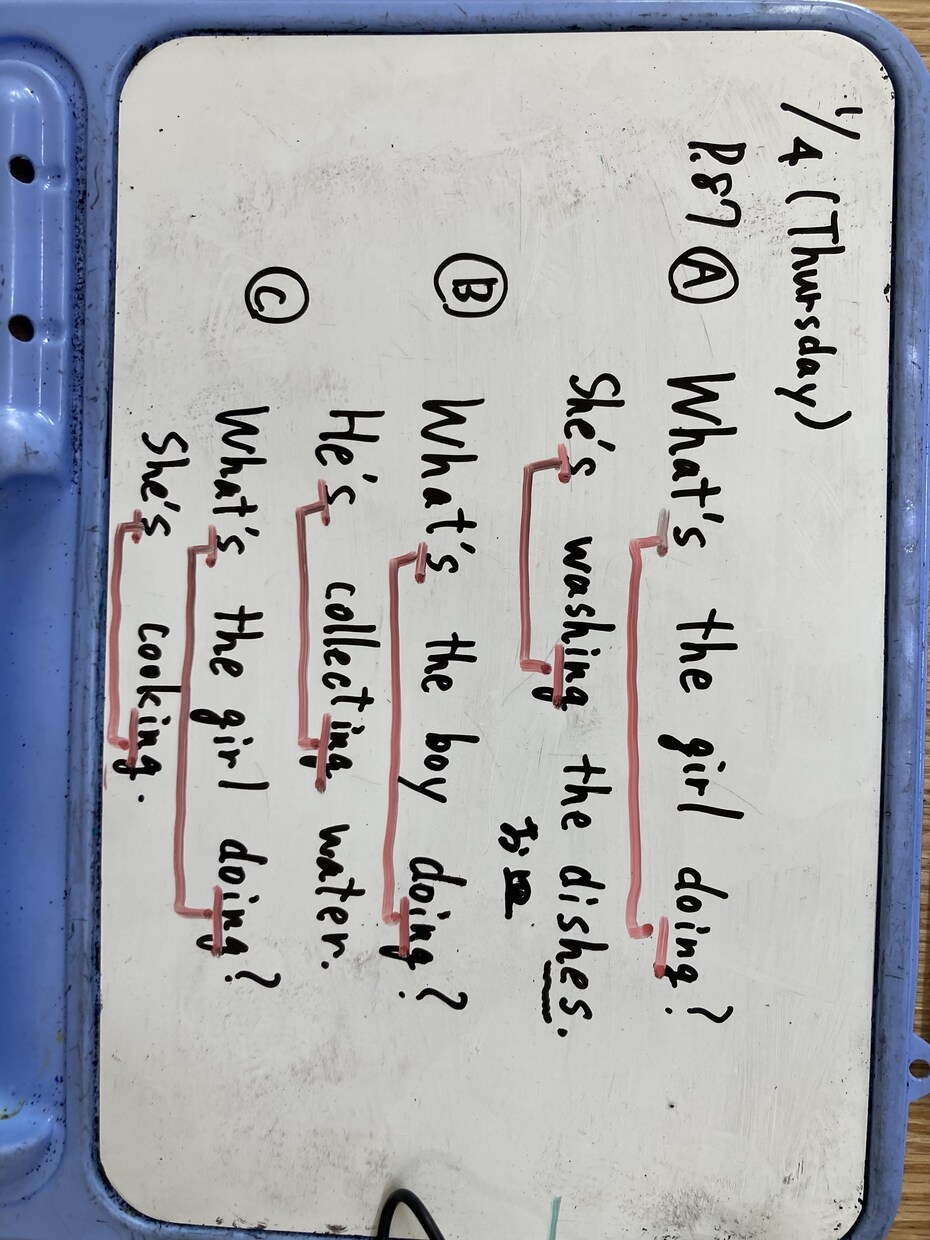 1/4 (Thursday)
P.87 Ⓐ What's the girl doing?
She's washing the dishes.
お皿
Ⓑ What's the boy doing?
He's collecting water.
Ⓒ What's the girl doing?
She's cooking.